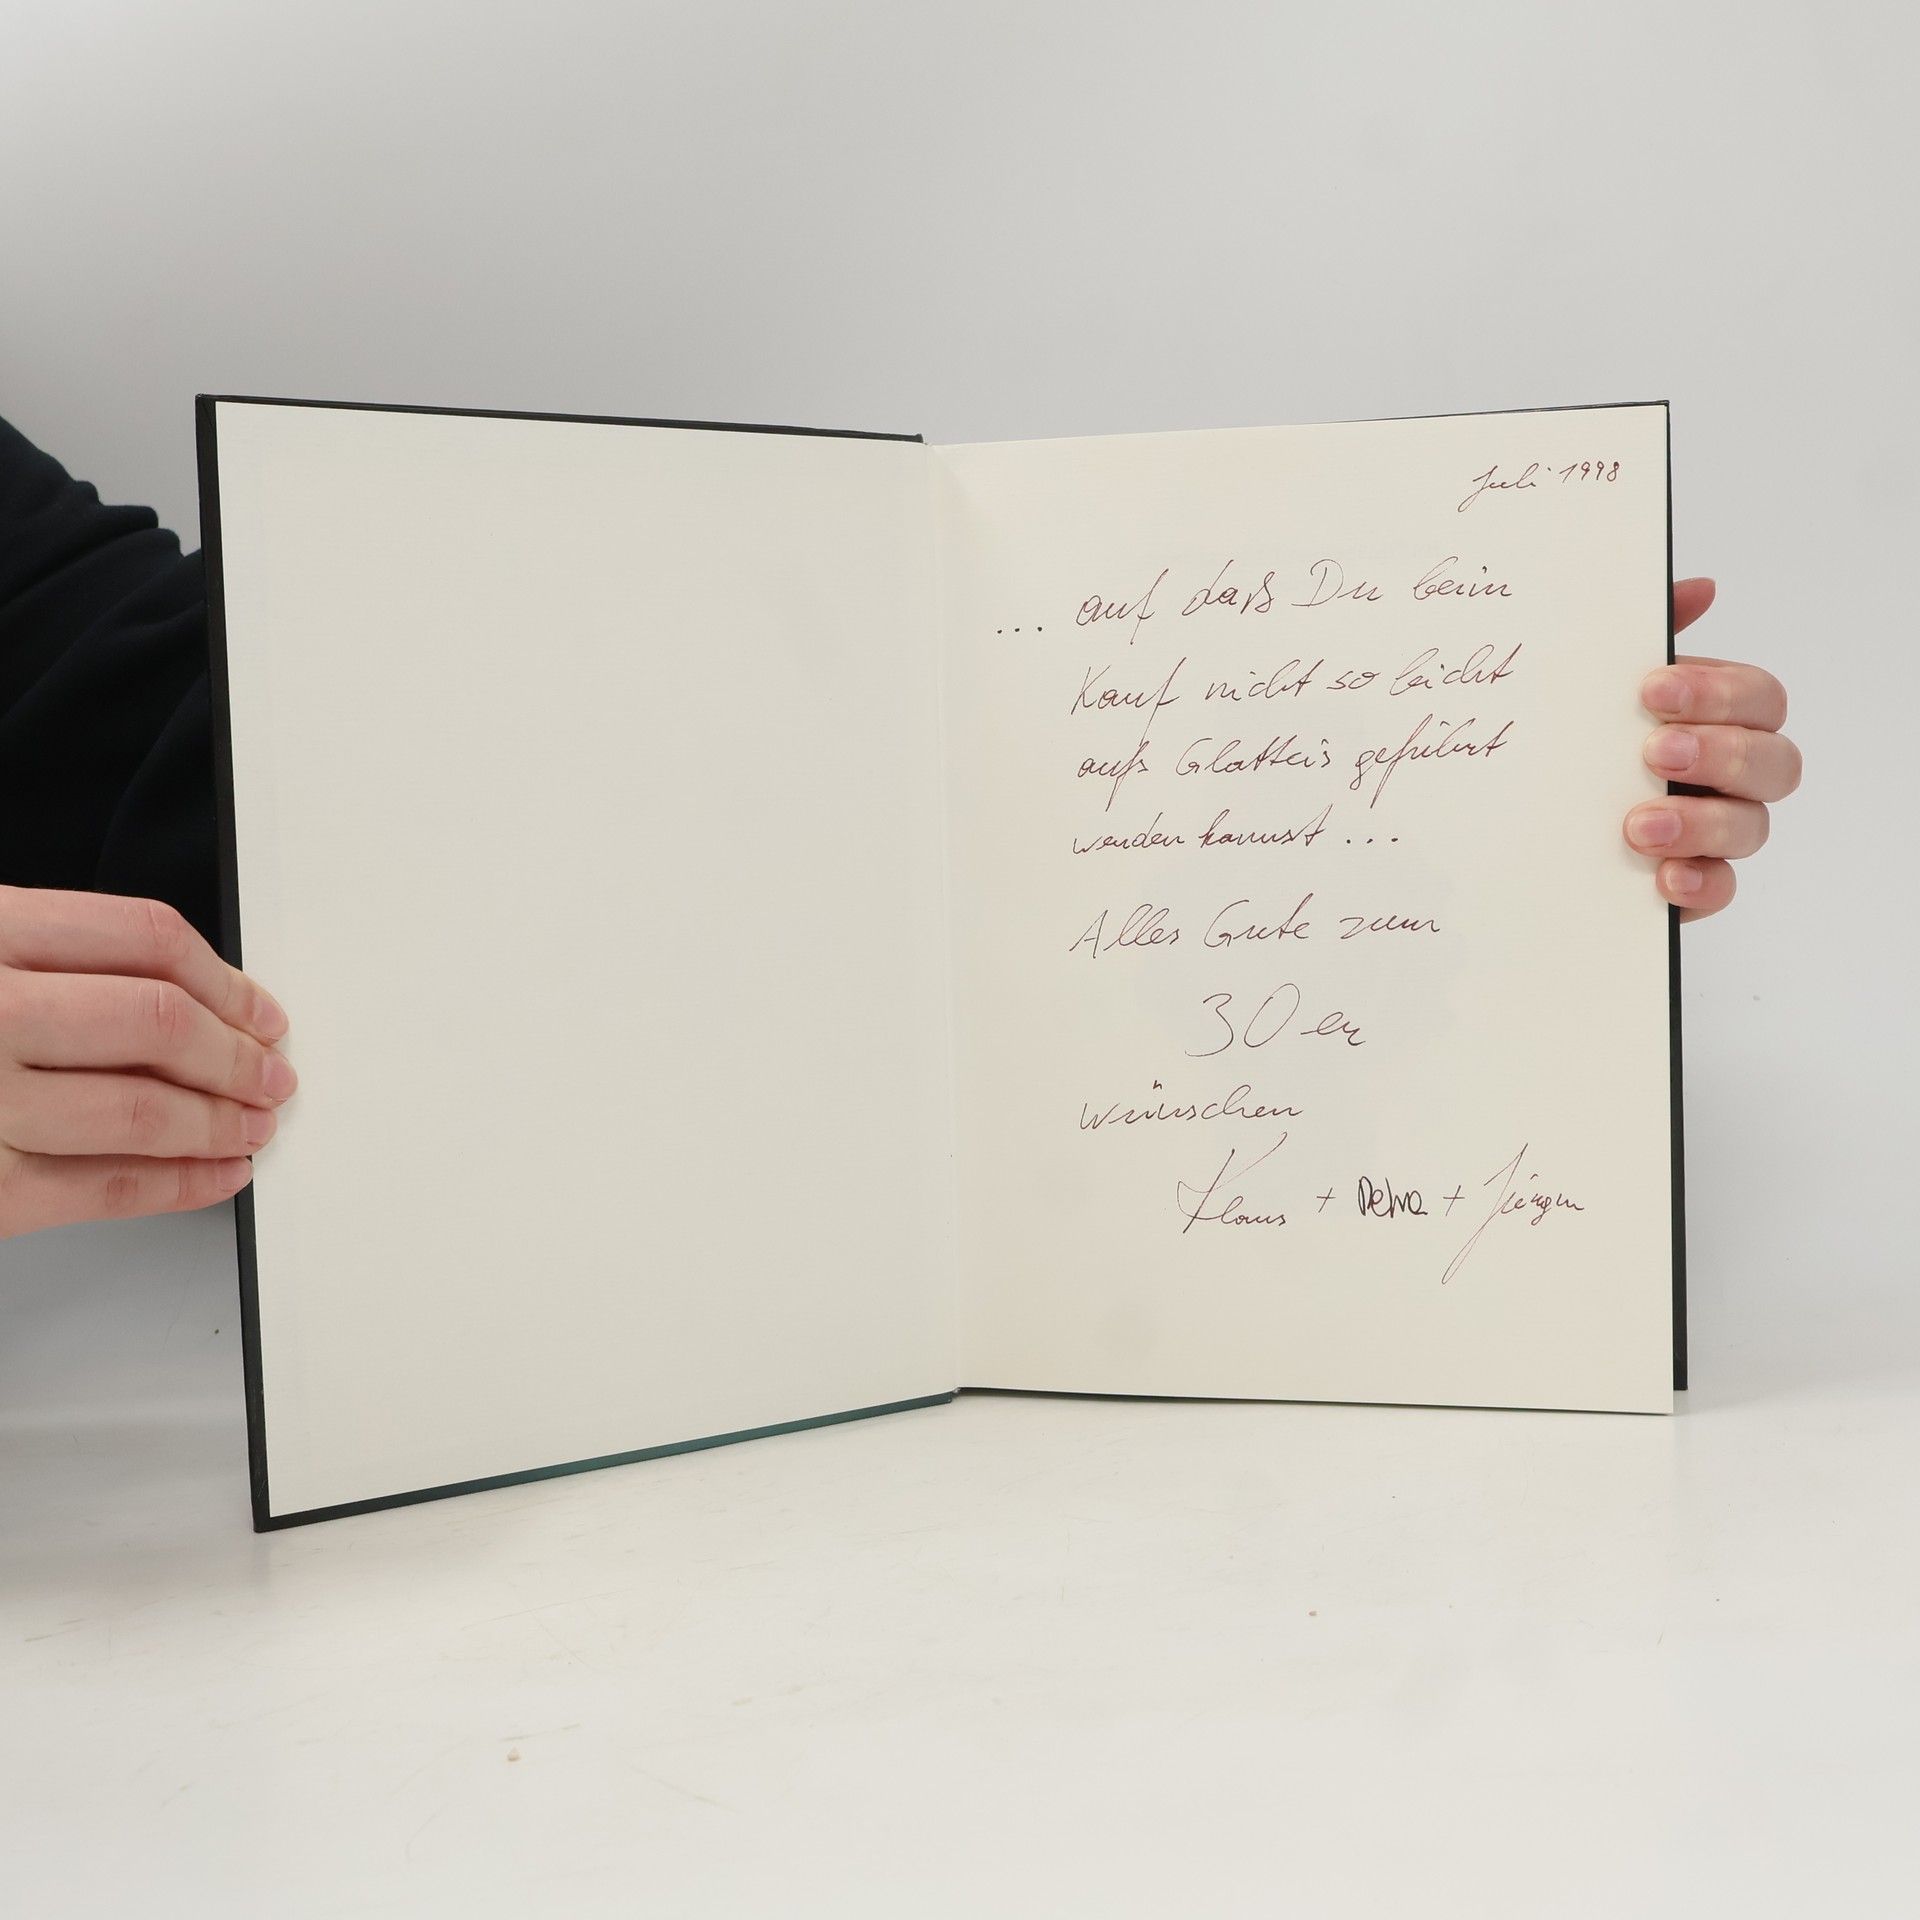 Juli 1998
... auf daß Du beim
Kauf nicht so leicht
aufs Glatteis geführt
werden kannst ...
Alles Gute zum
30er
wünschen
Klaus + Petra + Jürgen